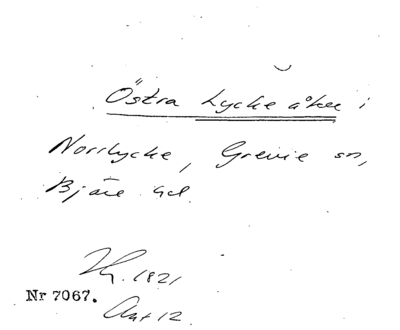 Östra Lycke åker i
Norrlycke, Grevie sn,
Bjäre hd.
1821
Nr 7067.
Akt 12